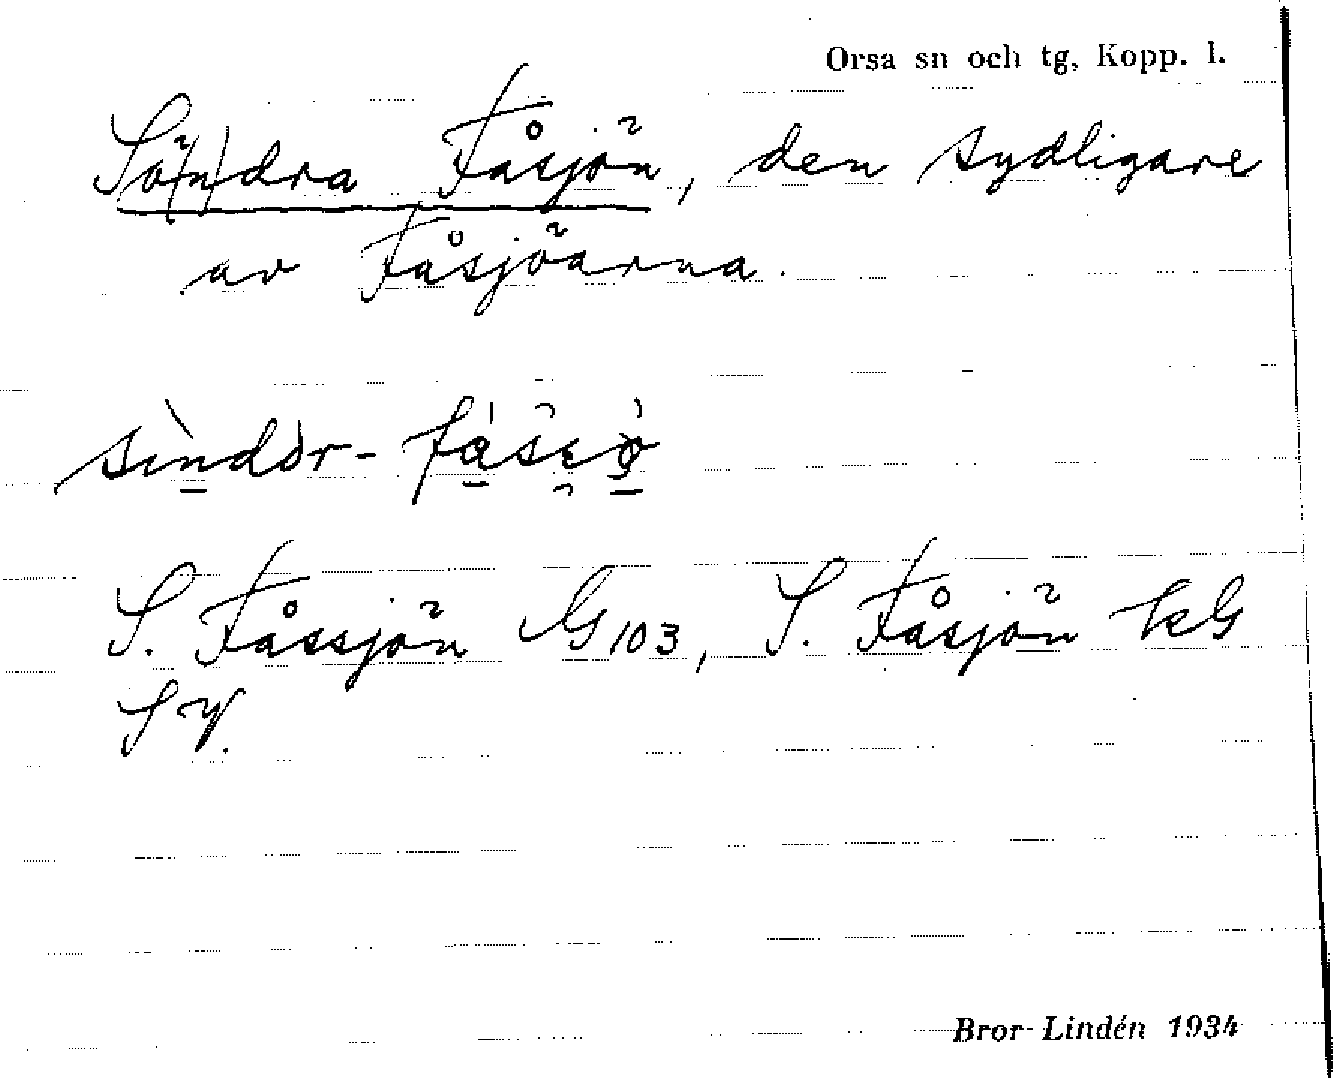 Orsa sn och tg, Kopp. l.
Sö(n)dra Fåsjön, den sydligare
av Fåsjöarna.
S. Fåssjön G 103, S. Fåsjön kG
SV.
Bror Lindén 1934